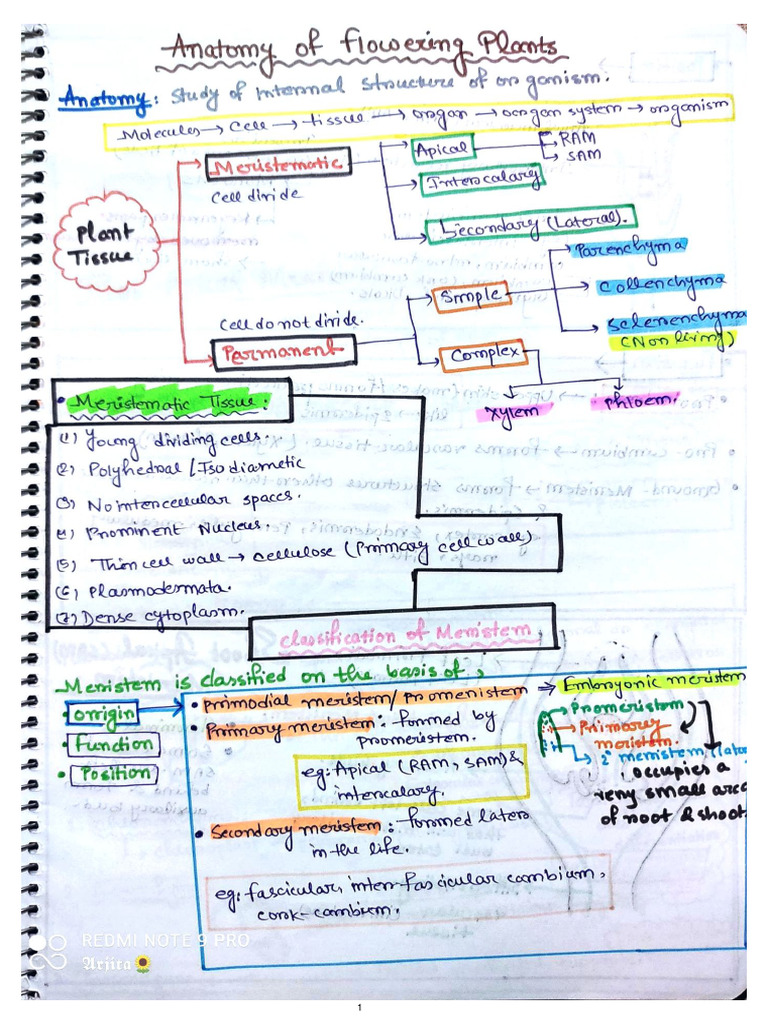 Anatomy of flowering Plants
Anatomy: study of internal structure of organism.
Molecules → Cell → tissue → organ → organ system → organism
Meristematic
Cell divide
Apical
RAM
SAM
Intercalary
Secondary (Lateral).
Plant
Tissue
Parenchyma
Collenchyma
Sclerenchyma
(Non living)
Simple
Cell do not divide.
Permanent
Complex
Xylem
Phloem.
• Meristematic Tissue:
(1) Young dividing cells.
(2) Polyhedral / Isodiametic
(3) No intercellular spaces.
(4) Prominent Nucleus.
(5) Thin cell wall → cellulose (Primary cell wall)
(6) Plasmodermata.
(7) Dense cytoplasm.
Classification of Meristem
Meristem is classified on the basis of,
• orrigin
• function
• Position
• primodial meristem/ Promeristem ⇒ Embryonic meristem
• Primary meristem: formed by
promeristem.
eg: Apical (RAM, SAM) &
intercalary.
Promeristem
Primary
meristem.
2° meristem (late
occupies a
very small area
of root & shoot.
• Secondary meristem: formed later
in the life.
eg: fascicular, inter-fascicular cambium,
cork-cambium.
REDMI NOTE 9 PRO
Arjita🌻
1